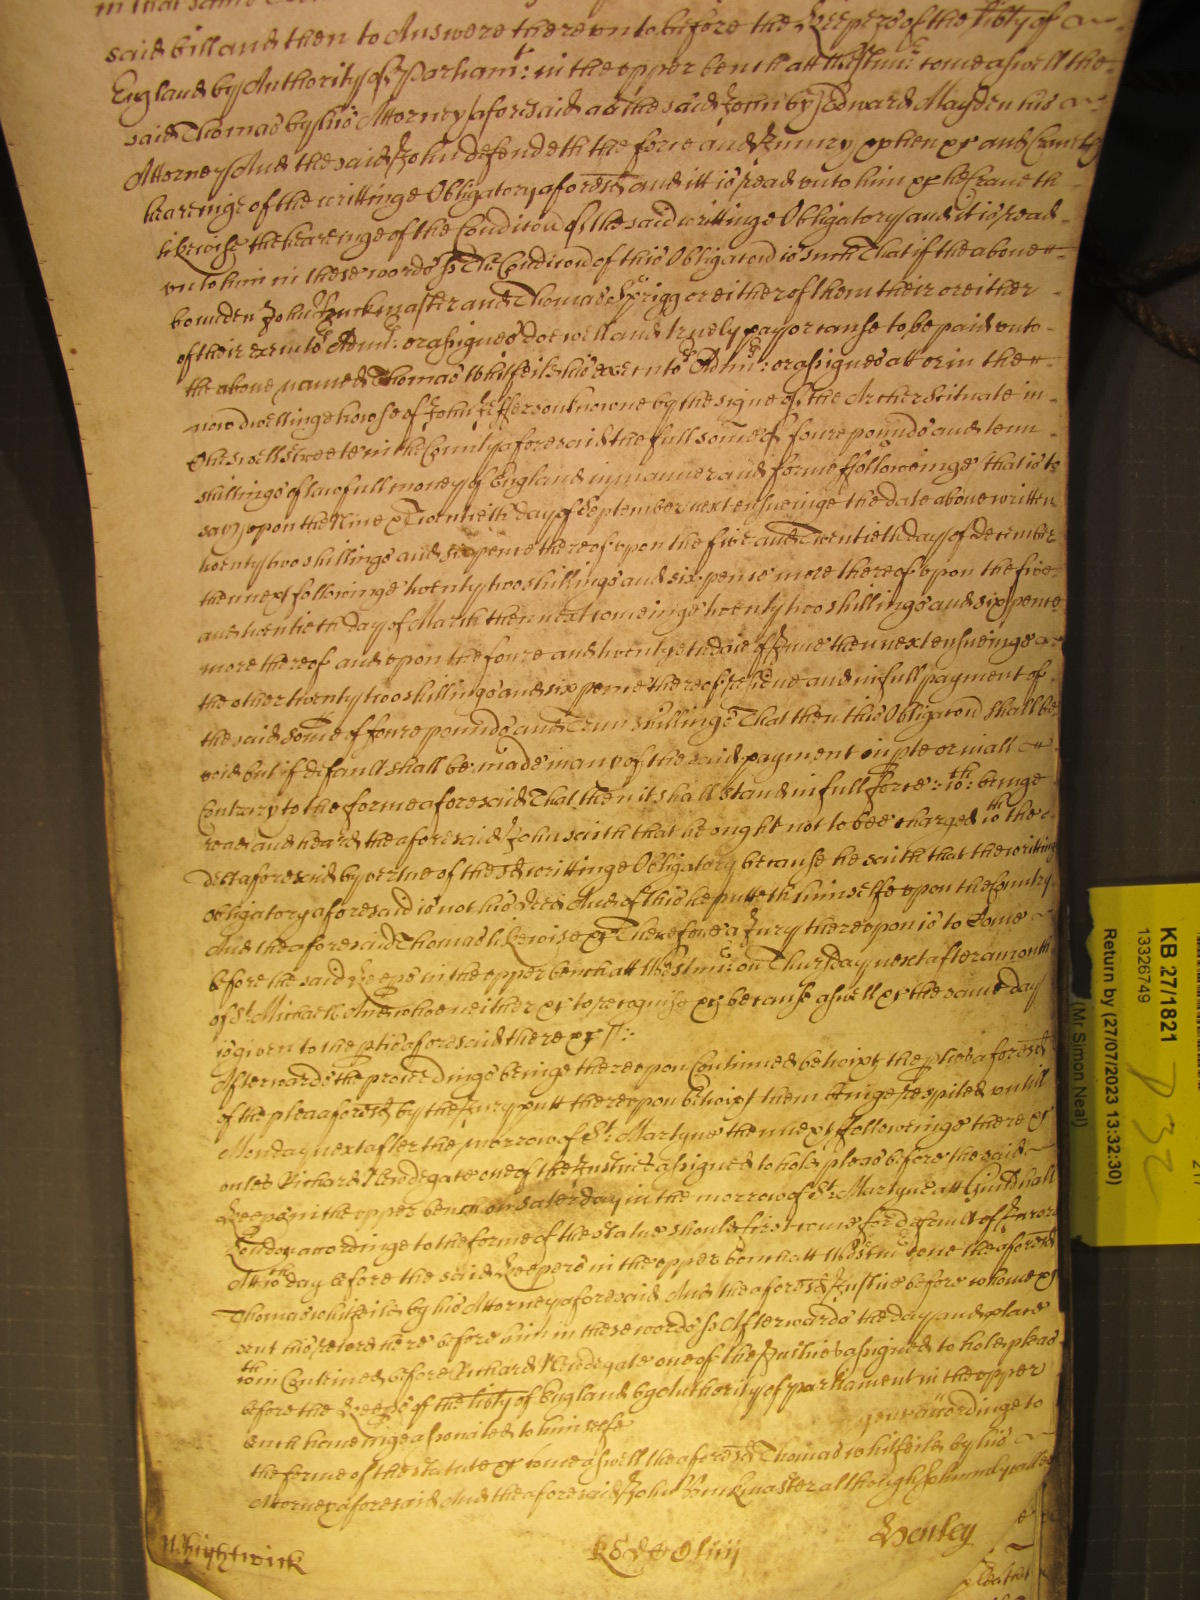 in that same
said bill and then to Answere there vnto before the Keepers of the libty of
England by Authority of Parliamt: in the vpper bench att Westmr: come aswell the
said Thomas by his Attorney aforesaid as the said John by Edward Mayden his
Attorney And the said John defendeth the force and Iniury when &c and Craveth
heareinge of the writtinge Obligatory aforesd and itt is read vnto him &c he Craveth
likewise the heareinge of the Condicon of the said writtinge Obligatory and it is read
vnto him in these words ss The Condicon of this Obligacon is such That if the above
bounden John Buckmaster and Thomas Sprigg or either of them their or either
of their executors Admrs: or assignes doe well and truely pay or cause to be paid vnto
the above named Thomas Whitfeild his executors Admrs: or assignes att or in the
now dwellinge howse of John Jefferson knowne by the signe of the Archer Scituate in
Chiswell streete in the County aforesaid the full some of foure pounds and tenn
shillings of lawfull money of England in manner and forme followeinge that is to
say vpon the Nine & Twentieth day of September next ensueinge the date above written
twenty two shillings and sixpence thereof vpon the five and Twentieth day of December
then next followinge twenty two shillings and six pence more thereof vpon the five
and twentieth day of March then next comeinge twenty two shillings and six pence
more thereof and vpon the foure and twentyeth daie of June then next ensueinge
the other twenty two shillings and six pence thereof residue and in full payment of
the said some of foure pounds and Tenn shillings That then this Obligacon shall be
void but if default shall be made in any of the said payment in pte or in all
Contrary to the forme aforesaid That then it shall stand in full force: wch: beinge
read and heard the aforesaid John saith that he ought not to bee charged wth the
debt aforesaid by vertue of the sd writtinge Obligatory because he saith that the writtinge
obligatory aforesaid is not his deed And of this he putteth himselfe vpon the Country
And the aforesaid Thomas likewise &c Therefore a Jury thereupon is to Come
before the said Keeps in the vpper bench att Westmr: on Thursday next after a month
of St. Michaell And who neither &c to recognise &c because aswell &c the same day
is given to the pties aforesaid there &c
Afterwards the proceedings beinge therevpon Continued betwixt the pties aforesd
of the plea aforesd by the Jury putt therevpon betwixt them beinge respited vntill
Monday next after the morrow of St. Martyne then next followeinge there &c
vnles Richard Newdegate one of the Justices assigned to hold pleas before the said
Keeps in the vpper bench on Saterday in the morrow of St. Martyne att Guildhall
London accordinge to the forme of the statue should first come for default of Jurors
Att wch day before the said Keepers in the vpper bench att Westmr come the aforesd
Thomas whitfeild by his Attorney aforesaid And the aforesd Justice before whome &c
sent his record here before him in these words ss Afterwards the day and place
wthin Conteined before Richard Newdegate one of the Justices assigned to hold pleas
before the Keeps of the libty of England by Authority of parliament in the vpper
bench home inge associated to himselfe accordinge to
the forme of the statute &c come aswell the aforesd Thomas whitfeild by his
Attorney aforesaid And the aforesaid John Buckmaster although solemnly called
N. hightwick
Henley
KB 27/1821
13326749
Return by (27/07/2023 13:32:30)
(Mr Simon Neal)